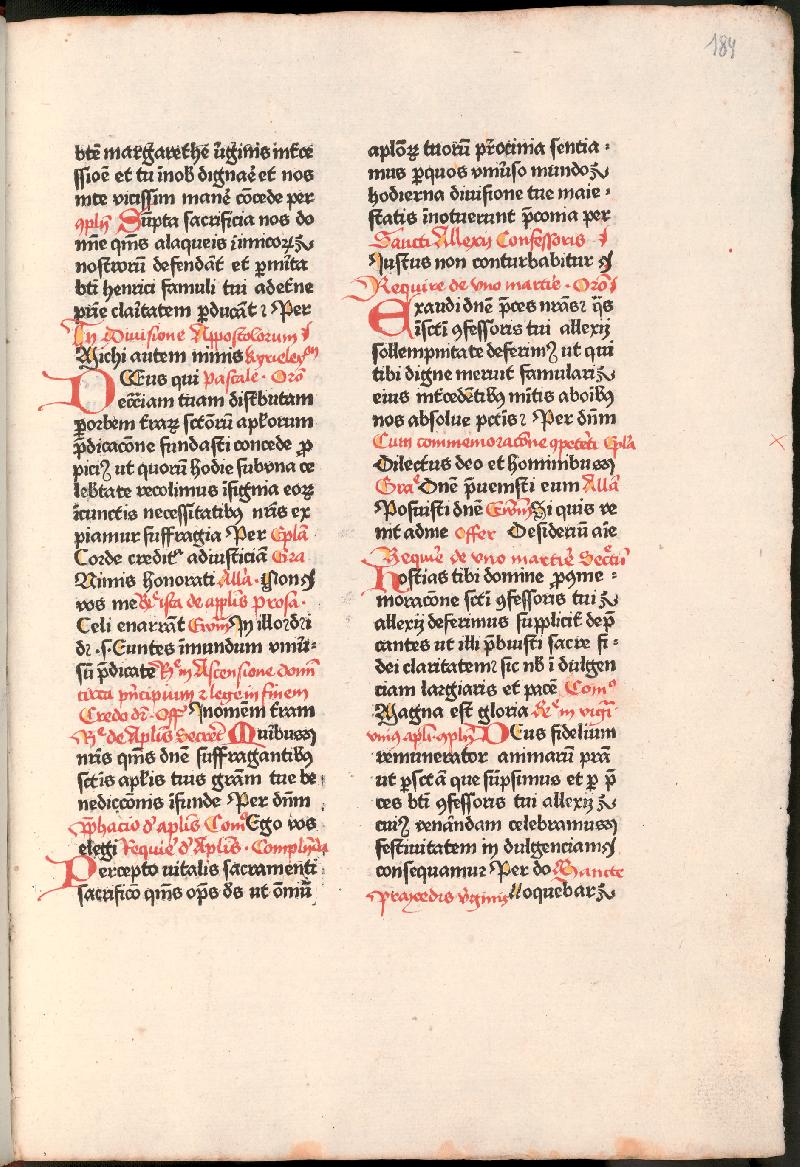 184
btē margarethē v̄ginis int̄ce
ssiōe et tu īnob dignaē et nos
in te vicissim manē cōcede per
ꝯplń Sūpta sacrificia nos do
mīe qm̄s alaqueis inimicoꝝ
nostrorū defendāt et ꝑmīta
bt̄i henrici famuli tui adetne
pr̄ie claitatem ꝑducāt Per
In Diuisione Appostolorum
Michi autem nimis kyrieleyson
DEus qui pascale Orō
eccīam tuam distbutam
ꝑorbem t̄raꝝ sctōrū aplorum
p̄dicacōne fundasti concede ꝓ
piciꝰ ut quorū hodie subvna ce
lebtate recolimus īsignia eoꝝ
īcunctis necessitatibꝰ nr̄is ex
piamur suffragia Per Epla
Corde creditʳ adiusticiā Gra
Nimis honorati Alla Non
vos me Reᵉ ista de aplis prosa
Celi enarrāt Ewm̄ In illo dn̄i
dr̄ s Euntes inmundum vniuᵉ
sū p̄dicate Reᵉ in Ascensione domī
circa pn̄cipium ⁊ lege in finem
Credo dr̄ Offᵉ In omēm t̄ram
Reᵉ de Aplis Secret Quibus
nr̄is qm̄s dnē suffragantibꝰ
sctis aplis tuis grām tue be
nediccōnis īfunde Per dn̄m
p̄phacio d' aplis Comᵒ Ego vos
elegi Requiē d' Aplis Complnda
Percepto vitalis sacramenti
sacrifico qm̄s op̄s ds̄ ut om̄iū
aplōꝝ tuorū pr̄ocinia sentia
mus ꝑquos vniūso mundo
hodierna diuisione tue maie
statis īnotuerunt p̄conia per
Sancti Allexij Confessoris
Iustus non conturbabitur
Require de vno martire Orō
Exaudi dnē p̄ces nrās q̄s
īscti ꝯfessoris tui allexij
sollempnitate deferimꝰ ut qui
tibi digne meruit famulari
eius int̄cedētibꝰ m̄itis ab oībꝰ
nos absolue pctis Per dn̄m
Cum commemoracōne ꝯpetēti Epla
Dilectus deo et hominibus
Graᵉ Dnē p̄uenisti eum Alla
Posuisti dnē Ewm̄ Si quis ve
nit ad me Offer Desideriū aīe
Requiᵉ de vno martire Secretū
Hostias tibi domine ꝓ ꝯme
moracōne scti ꝯfessoris tui
allexij deferimus supplicit̄ dep̄
cantes ut illi p̄buisti sacre fi
dei claritatem sic nb̄ ī dulgen
ciam largiaris et pacē Comᵒ
Magna est gloria Reᵉ in vigi
vniꝰ apli ꝯplń DEus fidelium
remunerator animarū prā
ut ꝑ sctā que sūpsimus et ꝑ p̄
ces bt̄i ꝯfessoris tui allexij
cuiꝰ venāndam celebramus
festiuitatem in dulgenciam
consequamur Per do Sancte
praxedis v̄ginis Loquebar